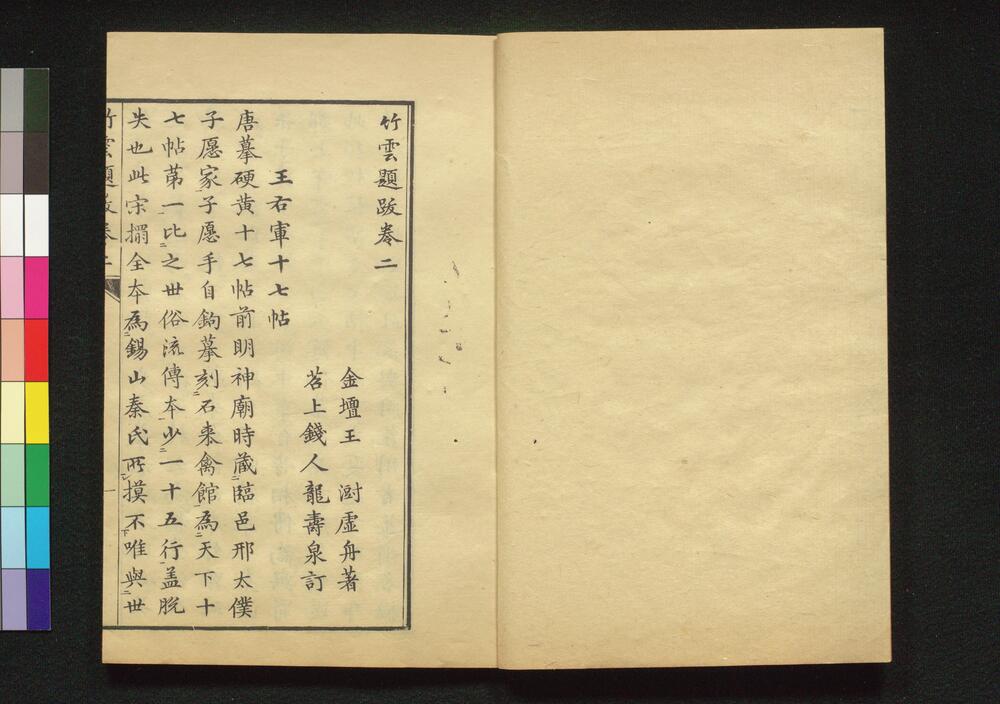 竹雲題跋卷二
金壇王澍虛舟著
苕上錢人龍壽泉訂
王右軍十七帖
唐摹硬黃十七帖前明神廟時藏臨邑邢太僕
子愿家子愿手自鉤摹刻石來禽館為天下十
七帖第一比之世俗流傳本少一十五行蓋脫
失也此宋搨全本為錫山秦氏所摸不唯與世
竹雲題跋卷二
一